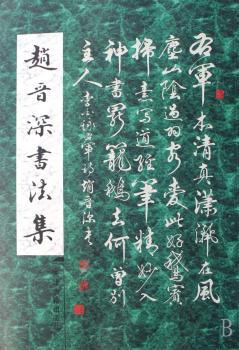 趙音深書法集
右軍本清真瀟灑在風
塵山陰過羽客愛此好鵝賓
掃素寫道經筆精妙入
神書罷籠鵝去何曾別
主人 李白詠右軍詩趙音深書
B